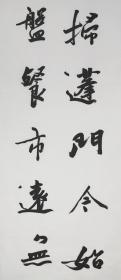 掃蓬門今始
盤餐市遠無